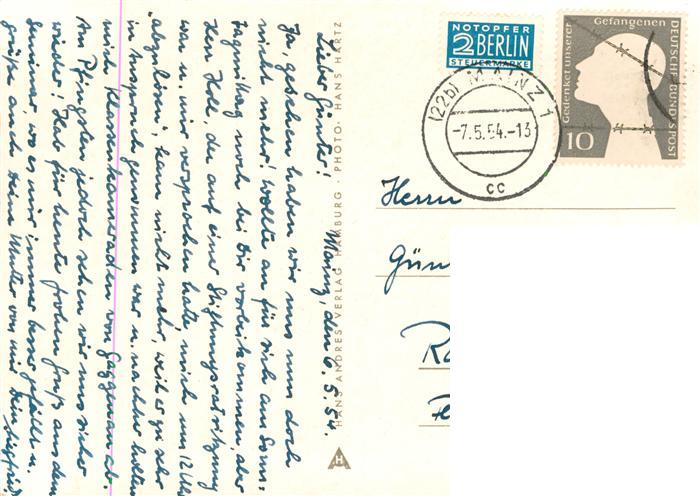 NOTOPFER
2 BERLIN
STEUERMARKE
Gedenket unserer
Gefangenen
DEUTSCHE BUNDESPOST
10
(22b) MAINZ 1
-7.5.54.-13
cc
Herrn
Gün
Ra
HANS ANDRES VERLAG HAMBURG · PHOTO: HANS HARTZ
HA
Mainz, den 6.5.54.
Lieber Günter!
Ja, gesehen haben wir uns nun doch
nicht mehr! Wollte an für sich am Sonn-
tag Mang noch bei Dir vorbeikommen, aber
den Zoll, der auf einer Stiftungsratsitzung
war u. mir versprochen hatte, mich um 12 Uhr
"abzulösen", kam nicht mehr, weil er zu sehr
in Anspruch genommen war u. nachher holten
mich Klassenkameraden von Gaggenau ab.
An Pfingsten jedoch sehen wir uns sicher
wieder! Hab für heute frohen Gruß aus dem
Seminar, wo es mir immer besser gefällt u.
grüße auch Deine Mutter von mir Dein Siegfried